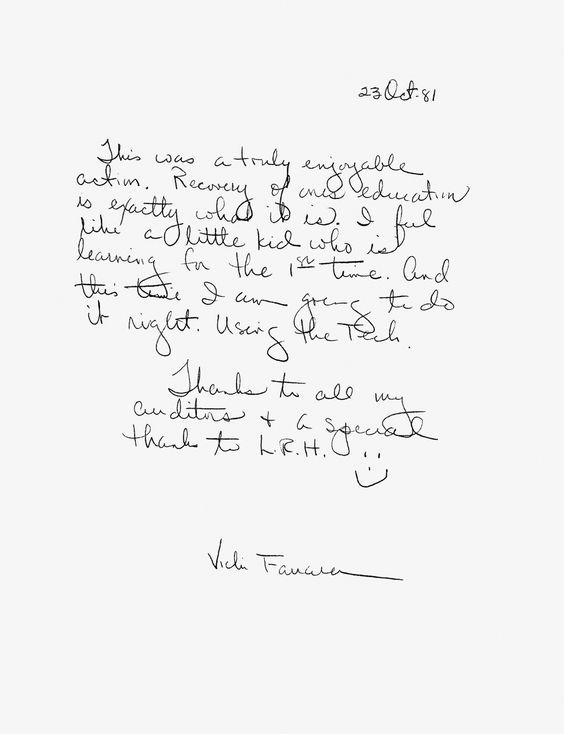 23 Oct. 81
This was a truly enjoyable
action. Recovery of ones education
is exactly what it is. I feel
like a little kid who is
learning for the 1st time. And
this time I am going to do
it right. Using the Tech.
Thanks to all my
auditors + a special
thanks to L.R.H.
Vicki